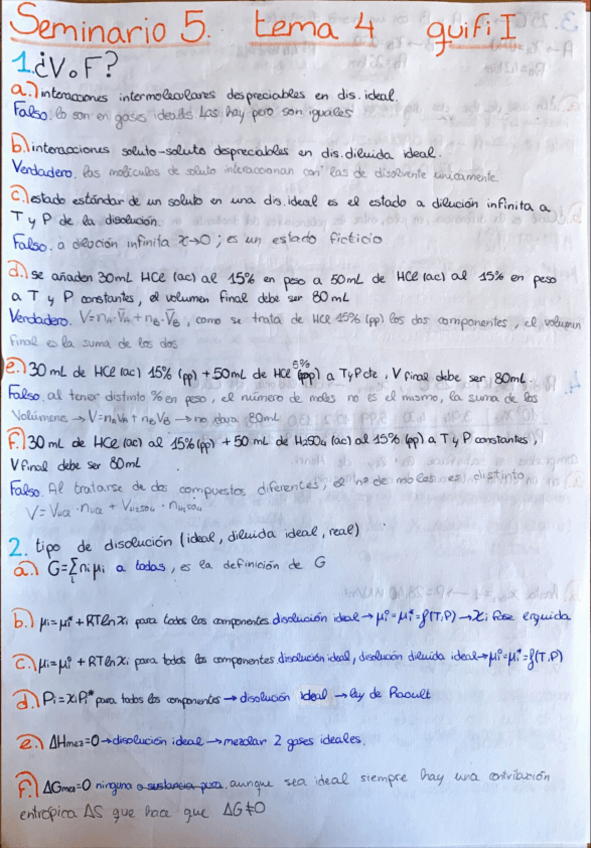 Seminario 5. tema 4 quifi I
1. ¿V o F?
a.) interacciones intermoleculares despreciables en dis. ideal.
Falso. lo son en gases ideales. Las hay pero son iguales
b.) interacciones soluto-soluto despreciables en dis. diluida ideal.
Verdadero. las moléculas de soluto interaccionan con las de disolvente unicamente.
c.) estado estándar de un soluto en una dis. ideal es el estado a dilución infinita a
T y P de la disolución.
Falso. a dilución infinita x→0; es un estado ficticio
d.) se añaden 30mL HCl (ac) al 15% en peso a 50mL de HCl (ac) al 15% en peso
a T y P constantes, el volumen final debe ser 80 mL
Verdadero. V=nA·V̄A + nB·V̄B, como se trata de HCl 15% (pp) los dos componentes, el volumen
final es la suma de los dos
e.) 30 mL de HCl (ac) 15% (pp) + 50mL de HCl 5% (pp) a T y P cte, V final debe ser 80mL.
Falso. al tener distinto % en peso, el número de moles no es el mismo, la suma de los
volúmenes → V=nAVA + nBVB → no dará 80mL
f.) 30 mL de HCl (ac) al 15% (pp) + 50 mL de H2SO4 (ac) al 15% (pp) a T y P constantes,
V final debe ser 80ml
Falso. Al tratarse de dos compuestos diferentes, el nº de moles es distinto
V = VHCl · nHCl + VH2SO4 · nH2SO4
2. tipo de disolución (ideal, diluida ideal, real)
a.) G=Σ ni μi a todas, es la definición de G
i
b.) μi=μi* + RTlnxi para todos los componentes disolución ideal → μi°=μi*=f(T,P) → xi fase líquida
c.) μi=μi° + RTlnxi para todos los componentes disolución ideal, disolución diluida ideal → μi°=μi*=f(T,P)
d.) Pi=xiPi* para todos los componentes → disolución ideal → ley de Raoult
e.) ΔHmez=0 → disolución ideal → mezclar 2 gases ideales.
f.) ΔGmez=0 ninguna o sustancia pura. aunque sea ideal siempre hay una contribución
entrópica ΔS que hace que ΔG≠0